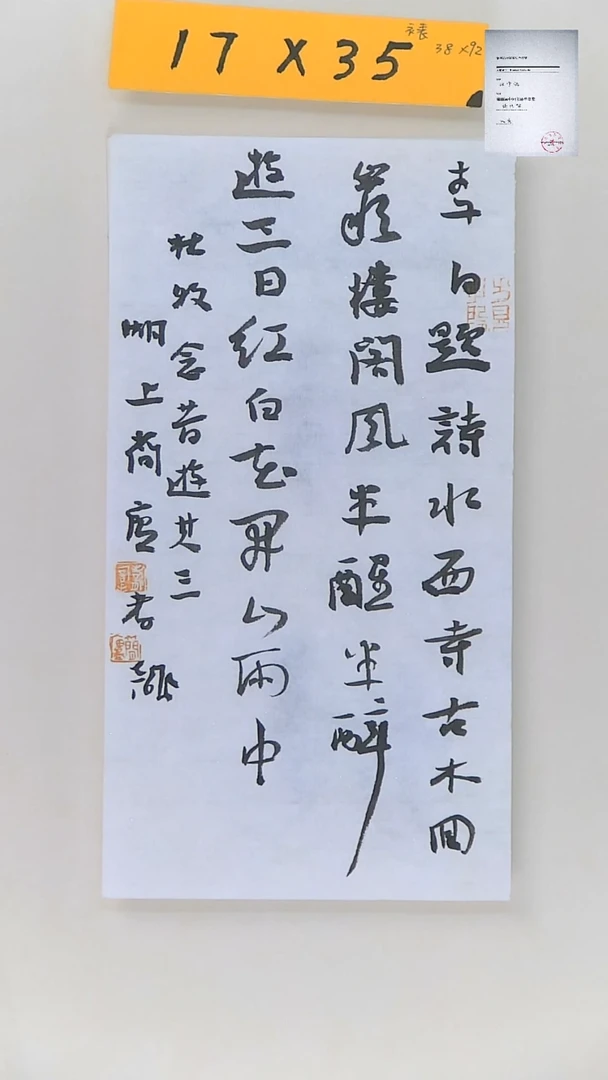 17 X 35
裱
38 X 92
李白題詩水西寺古木囬
巖樓閣風半醒半醉
遊三日紅白花開山雨中
杜牧念昔遊其三
上